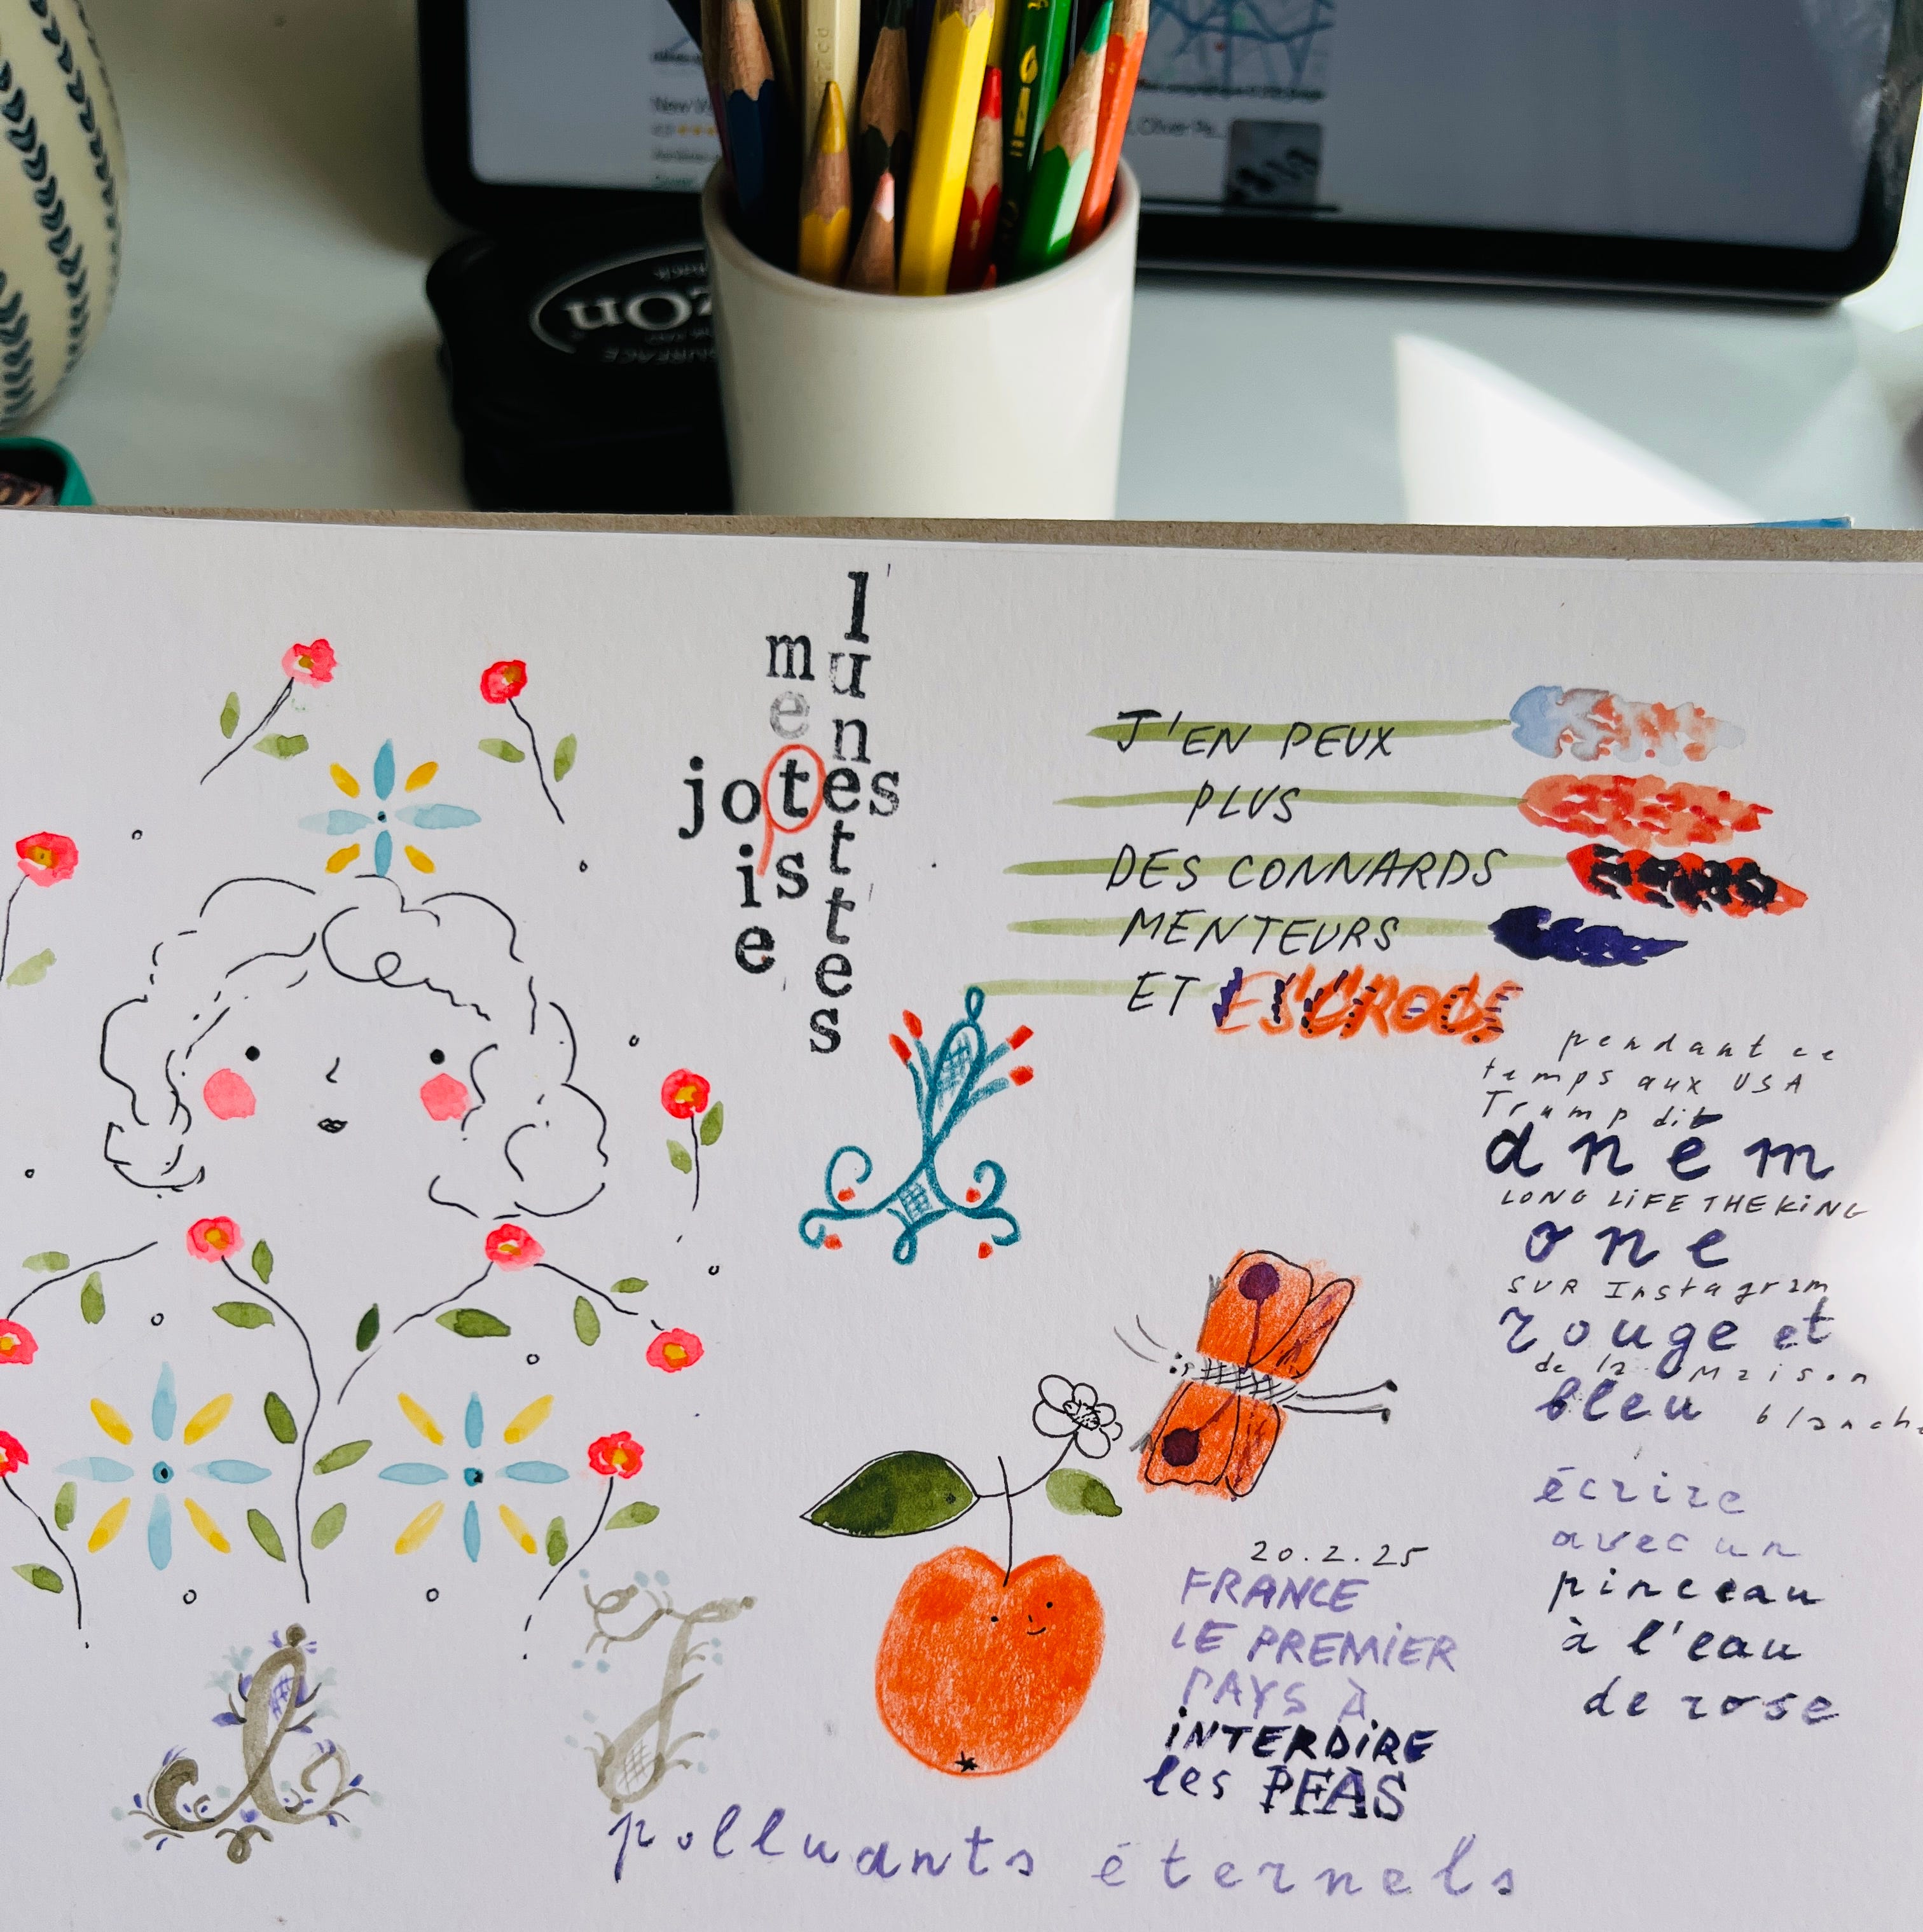 zOn
l
m u
e n
jotes
i s t
e t
e
s
J'EN PEUX
PLUS
DES CONNARDS
MENTEURS
ET ESCROCS
pendant ce
temps aux USA
Trump dit
aném
LONG LiFE THE KiNG
one
SUR Instagram
rouge et
de la Maison
bleu blanche
écrire
avec un
pinceau
à l'eau
de rose
20.2.25
FRANCE
LE PREMiER
PAYS À
iNTERDiRE
les PFAS
polluants éternels